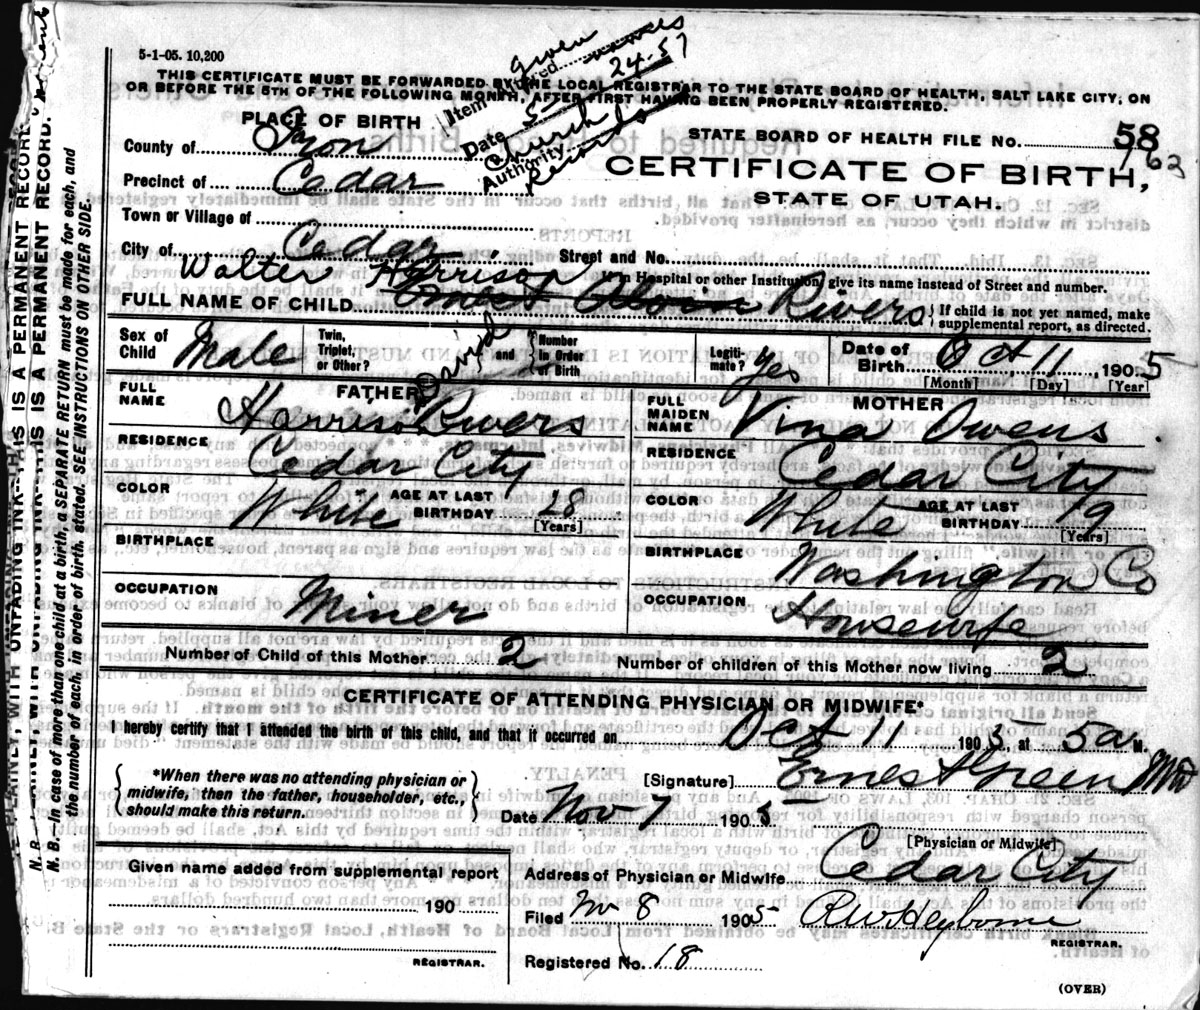 5-1-05. 10,200
Item Altered given names
Date 5-24-57
Authority Church Records
THIS CERTIFICATE MUST BE FORWARDED BY THE LOCAL REGISTRAR TO THE STATE BOARD OF HEALTH, SALT LAKE CITY, ON
OR BEFORE THE 5TH OF THE FOLLOWING MONTH, AFTER FIRST HAVING BEEN PROPERLY REGISTERED.
PLACE OF BIRTH
STATE BOARD OF HEALTH FILE NO. 58
County of Iron
CERTIFICATE OF BIRTH,
Precinct of Cedar
STATE OF UTAH.
Town or Village of
City of Cedar Street and No.
If in Hospital or other Institution, give its name instead of Street and number.
Walter Harrison
FULL NAME OF CHILD Ernest Alvin Rivers { If child is not yet named, make supplemental report, as directed.
Sex of Child Male Twin, Triplet, or Other? and Number in Order of Birth Legitimate? yes Date of Birth Oct 11 1905
[Month] [Day] [Year]
FATHER
FULL NAME Harrison David Rivers
RESIDENCE Cedar City
COLOR White AGE AT LAST BIRTHDAY 28 [Years]
BIRTHPLACE
OCCUPATION Miner
MOTHER
FULL MAIDEN NAME Vina Owens
RESIDENCE Cedar City
COLOR White AGE AT LAST BIRTHDAY 19 [Years]
BIRTHPLACE Washington Co
OCCUPATION Housewife
Number of Child of this Mother 2 Number of children of this Mother now living 2
CERTIFICATE OF ATTENDING PHYSICIAN OR MIDWIFE*
I hereby certify that I attended the birth of this child, and that it occurred on Oct 11 1905, at 5 a M.
{ *When there was no attending physician or midwife, then the father, householder, etc., should make this return. }
[Signature] Ernest Green MD
Date Nov 7 1905
[Physician or Midwife]
Given name added from supplemental report
190
REGISTRAR.
Address of Physician or Midwife Cedar City
Filed Nov 8 1905 R W Heyborne
REGISTRAR.
Registered No. 18
(OVER)
N. B.—In case of more than one child at a birth, a SEPARATE RETURN must be made for each, and
the number of each, in order of birth, stated. SEE INSTRUCTIONS ON OTHER SIDE.
WITH UNFADING INK—THIS IS A PERMANENT RECORD.